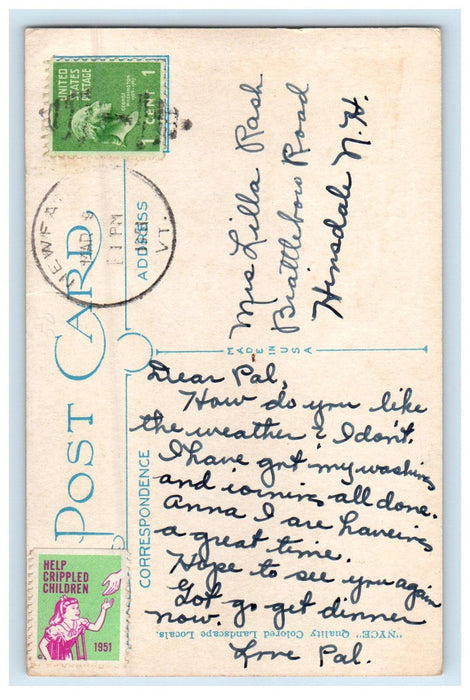 UNITED
STATES
POSTAGE
GEORGE
WASHINGTON
1 CENT 1
NEWFA
MAR 9
1 PM
1951
VT.
POST CARD
ADDRESS
Mrs Lilla Rash
Brattleboro Road
Hinsdale N.H.
MADE IN USA
CORRESPONDENCE
Dear Pal,
How do you like
the weather? I don't.
I have got my washing
and ioning all done.
Anna I are haveing
a great time.
Hope to see you again
Got go get dinner
now.
Love Pal.
"NYCE" Quality Colored Landscape Locals.
HELP
CRIPPLED
CHILDREN
1951